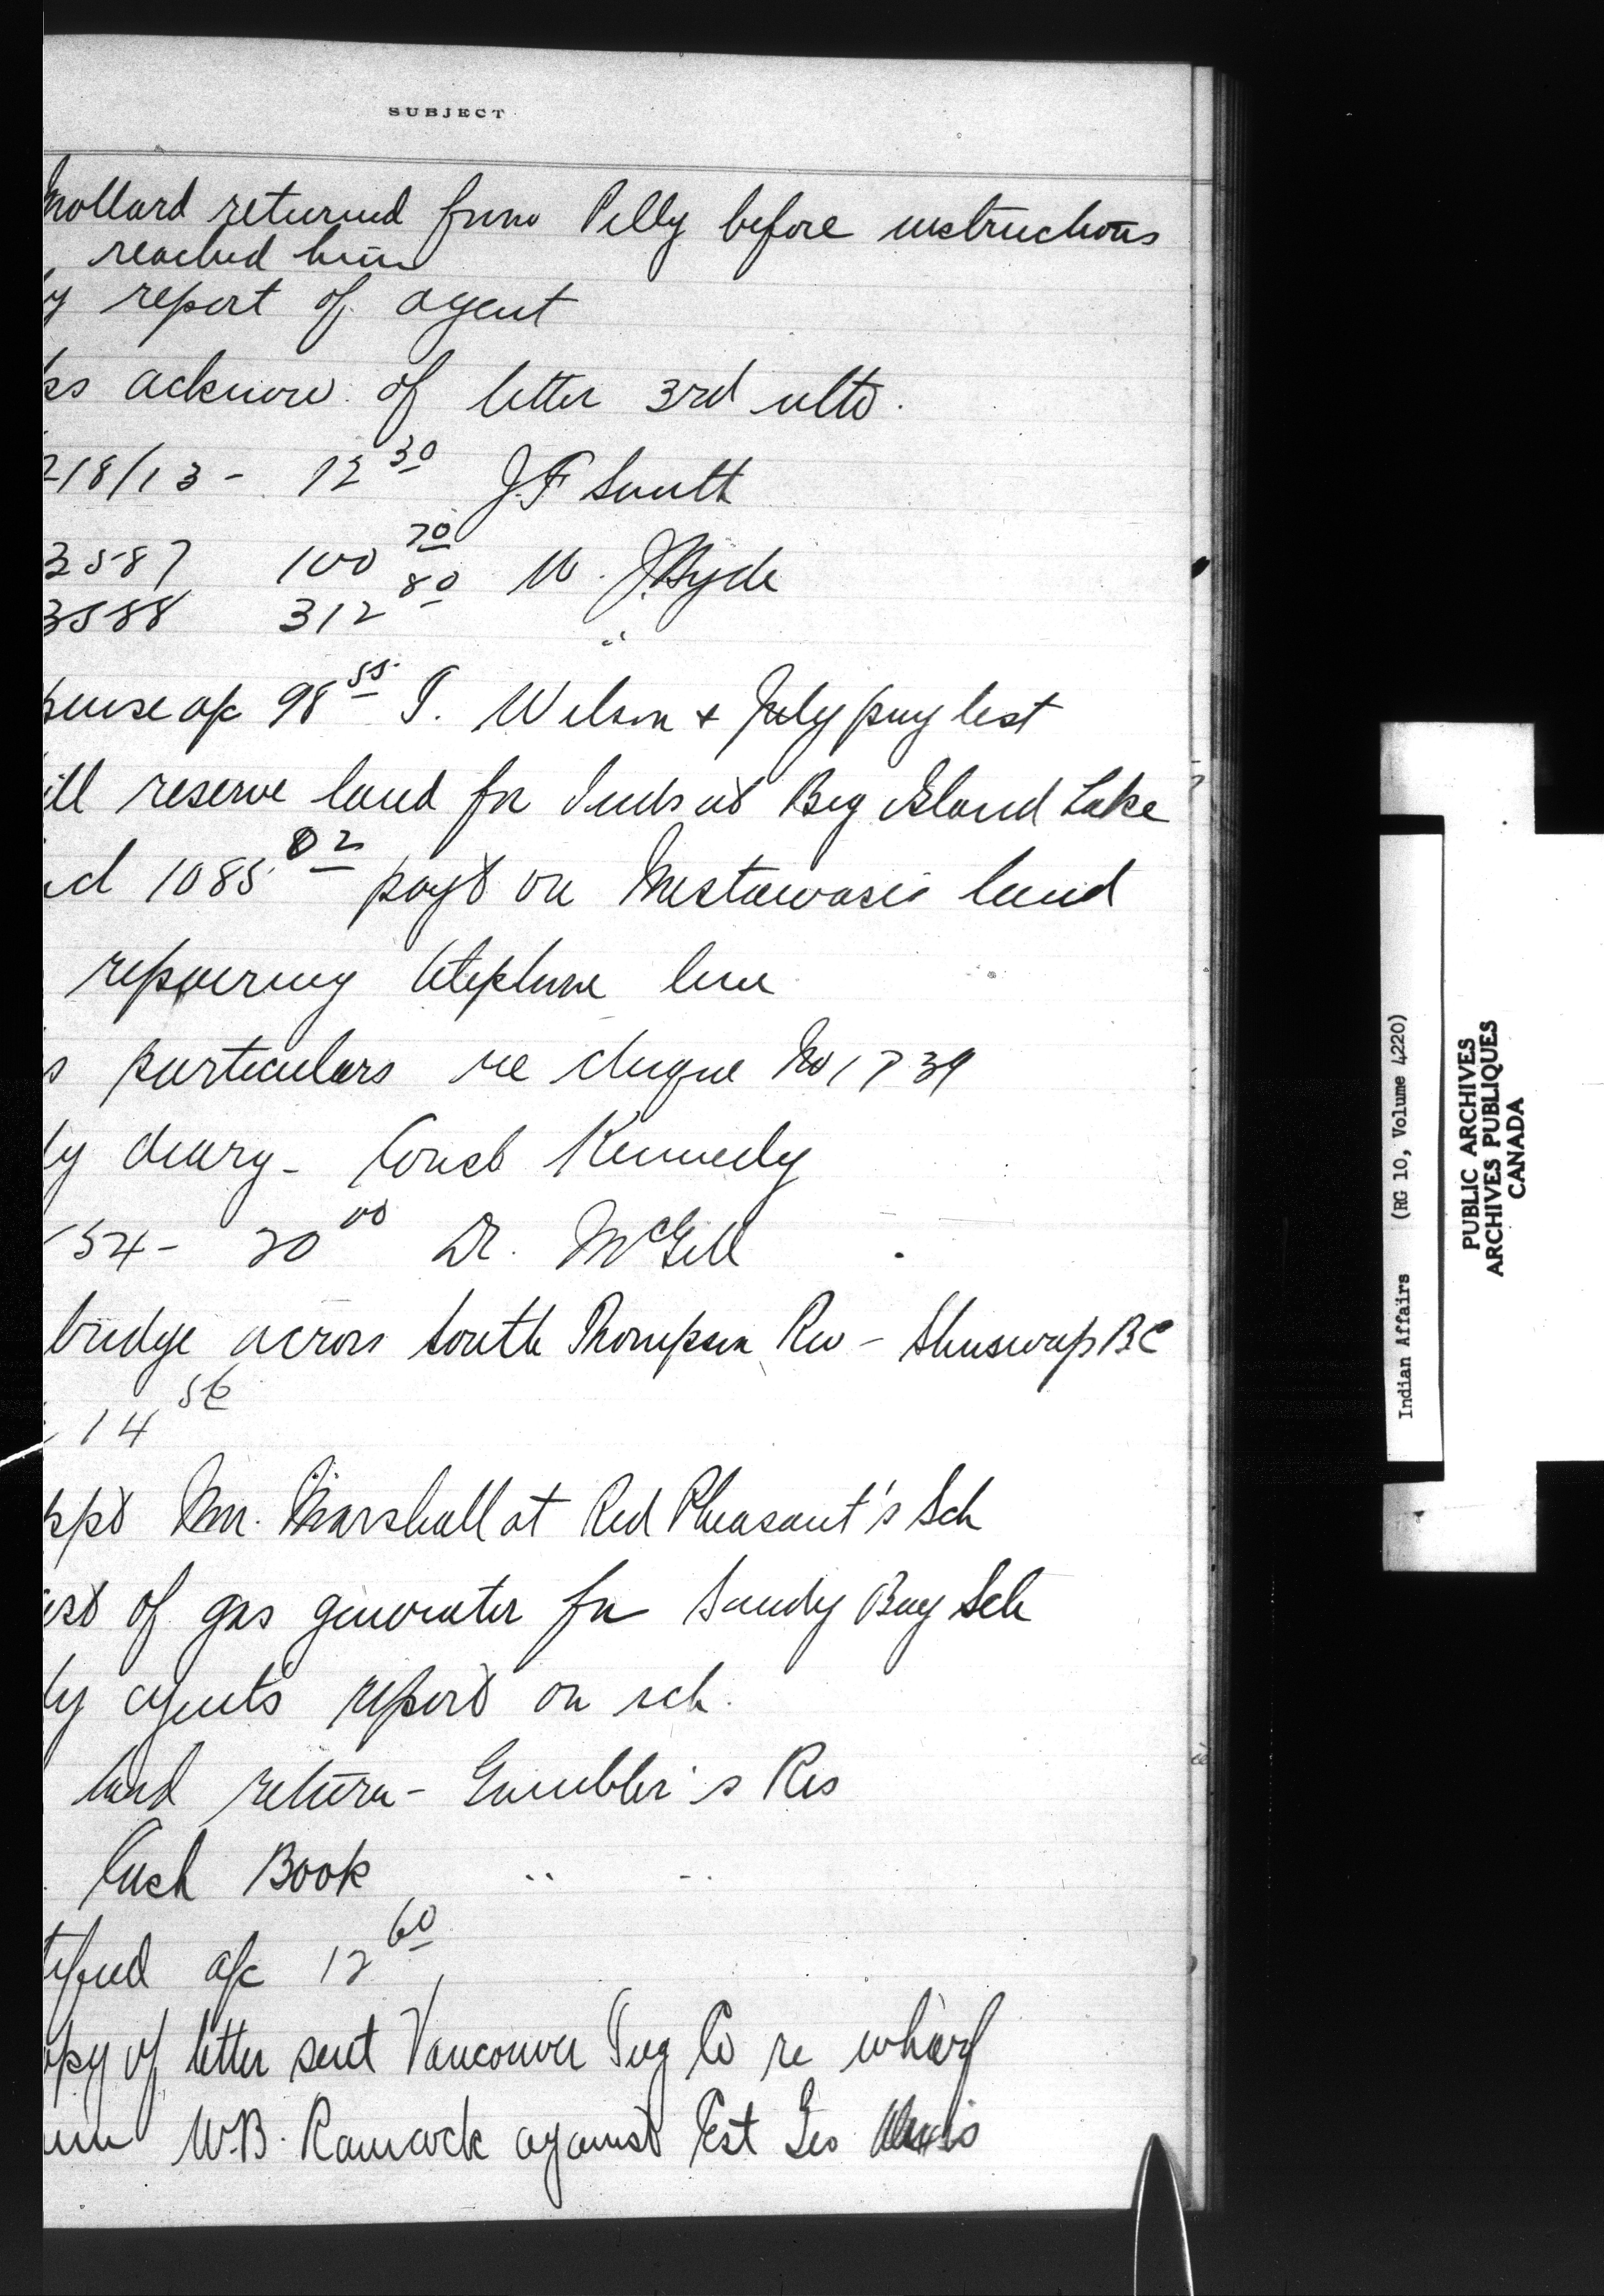 SUBJECT
Mollard returned from Pelly before instructions
reached him
report of agent
ks acknow. of letter 3rd ulto.
218/13 - 12 30 J.F Smith
3587 100 70 W. J. Hyde
3588 312 80 "
pense a/c 98 55 T. Wilson + July pay list
ill reserve land for Inds at Big Island Lake
id 1085 02 payt on Mistawasis land
repairing telephone line
s particulars re cheque No 1739
ly diary - Const Kennedy
154 - 20 00 Dr. McGill
bridge across South Thompson Riv - Shuswap BC
14 56
ppt Mr. Marshall at Red Pheasant's Sch
ost of gas generator for Sandy Bay Sch
ly agents report on sch.
land return - Gambler's Res
Cash Book " "
tified a/c 12 60
opy of letter sent Vancouver Tug Co re wharf
W.B. against Est Geo
Indian Affairs (RG 10, Volume 4220)
PUBLIC ARCHIVES
ARCHIVES PUBLIQUES
CANADA